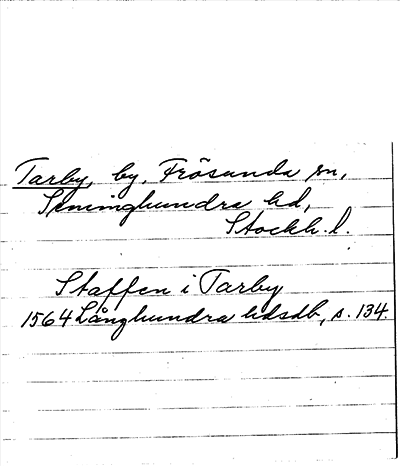 Tarby, by, Frösunda sn,
Seminghundra hd,
Stockh. l.
Staffen i Tarby
1564 Långhundra hdsdb, s. 134